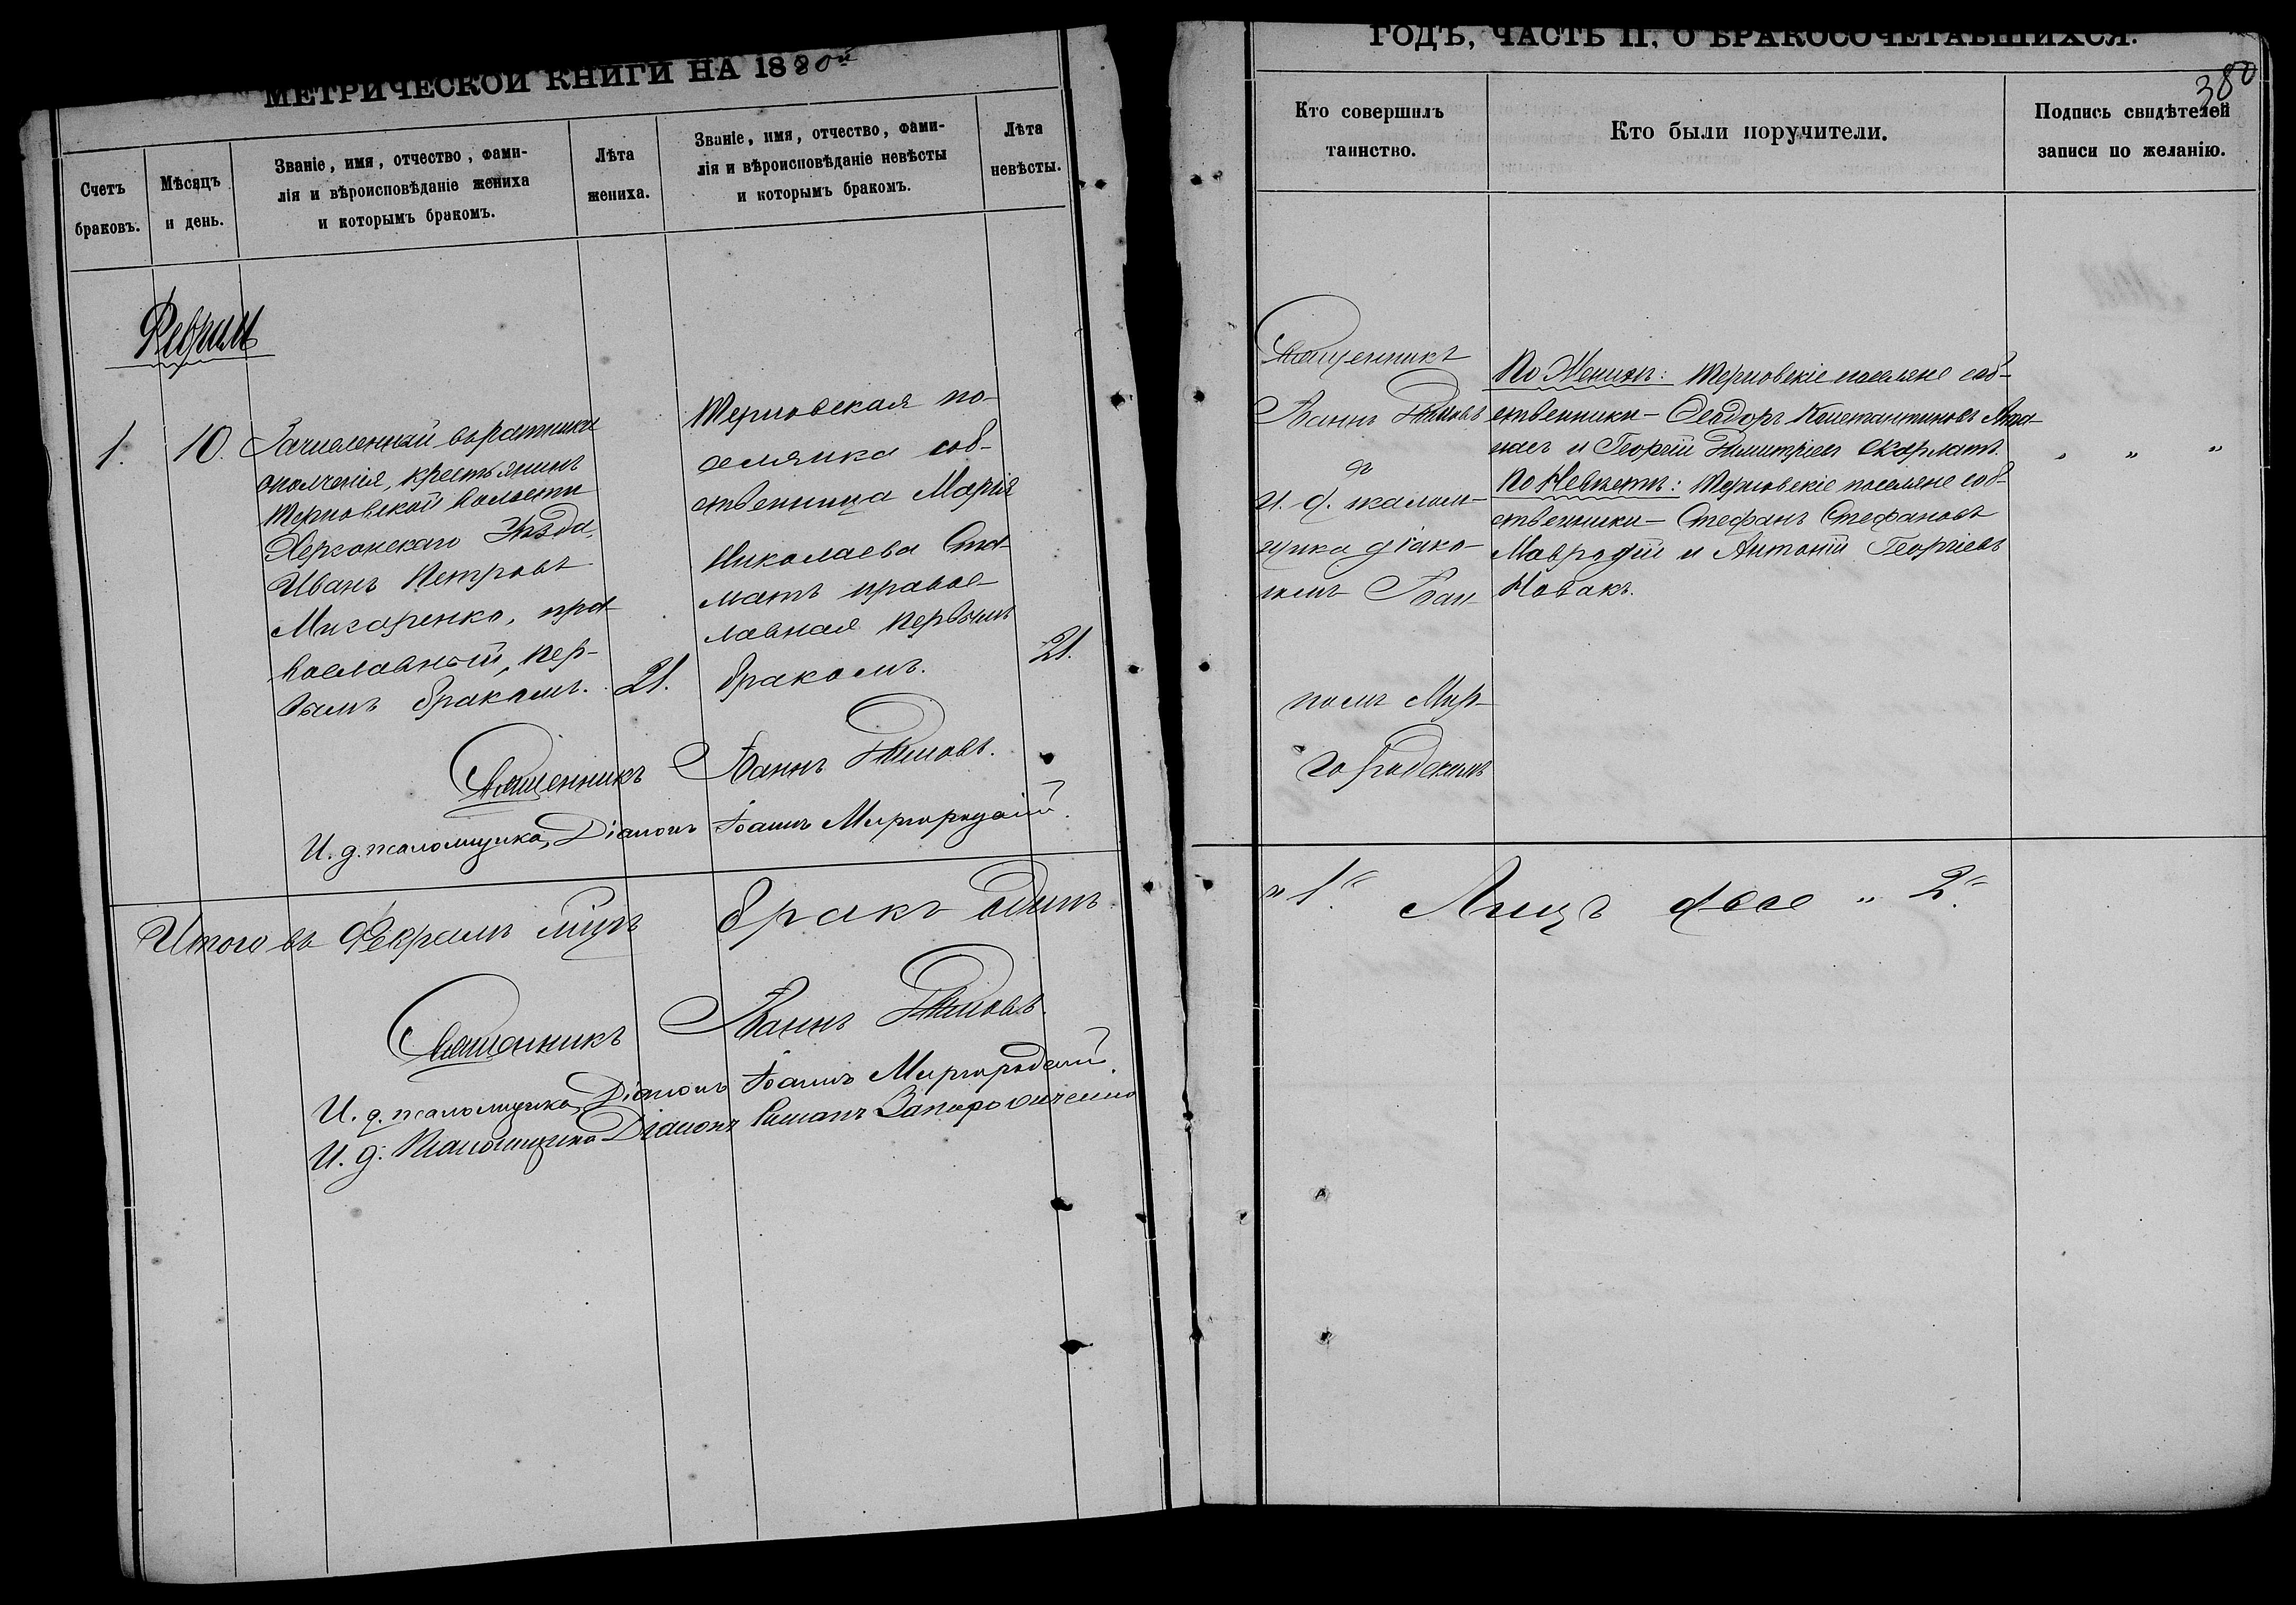 МЕТРИЧЕСКОЙ КНИГИ НА 1880й
Счетъ
браковъ.
Мѣсяцъ
и день.
Званіе, имя, отчество, фами-
лія и вѣроисповѣданіе жениха
и которымъ бракомъ.
Лѣта
жениха.
Званіе, имя, отчество, фами-
лія и вѣроисповѣданіе невѣсты
и которымъ бракомъ.
Лѣта
невѣсты.
Февраль
1.
10.
Зачисленный въ ратники
ополченія, крестьянинъ
Терновской волости
Херсонскаго Уѣзда,
Иванъ Петровъ
православный, пер-
вымъ бракомъ.
21.
Терновская по-
селянка соб-
ственница Марія
Николаева Ста-
матъ правос-
лавная первымъ
бракомъ.
21.
Священникъ Іоаннъ
И. д. псаломщика, Діаконъ Іоаннъ Миргородскій.
Итого въ Февралѣ м-цѣ бракъ одинъ.
Священникъ Іоаннъ
И. д. псаломщика, Діаконъ Іоаннъ Миргородскій.
И. д. Псаломщика Діаконъ Романъ
ГОДЪ, ЧАСТЬ II, О БРАКОСОЧЕТАВШИХСЯ.
380
Кто совершилъ
таинство.
Кто были поручители.
Подпись свидѣтелей
записи по желанію.
Священникъ
Іоаннъ
съ
и. д. псалом-
щика діако-
номъ Іоан-
номъ Мир-
городскимъ
По Женихѣ: Терновскіе поселяне соб-
ственники – Ѳеодоръ Константиновъ
и Георгій Димитріевъ Скарлатъ.
По Невѣстѣ: Терновскіе поселяне соб-
ственники – Стефанъ Стефановъ
Мавродій и Антоній Георгіевъ
Новакъ.
„ „ „
„ 1." Лицъ двое „ 2."